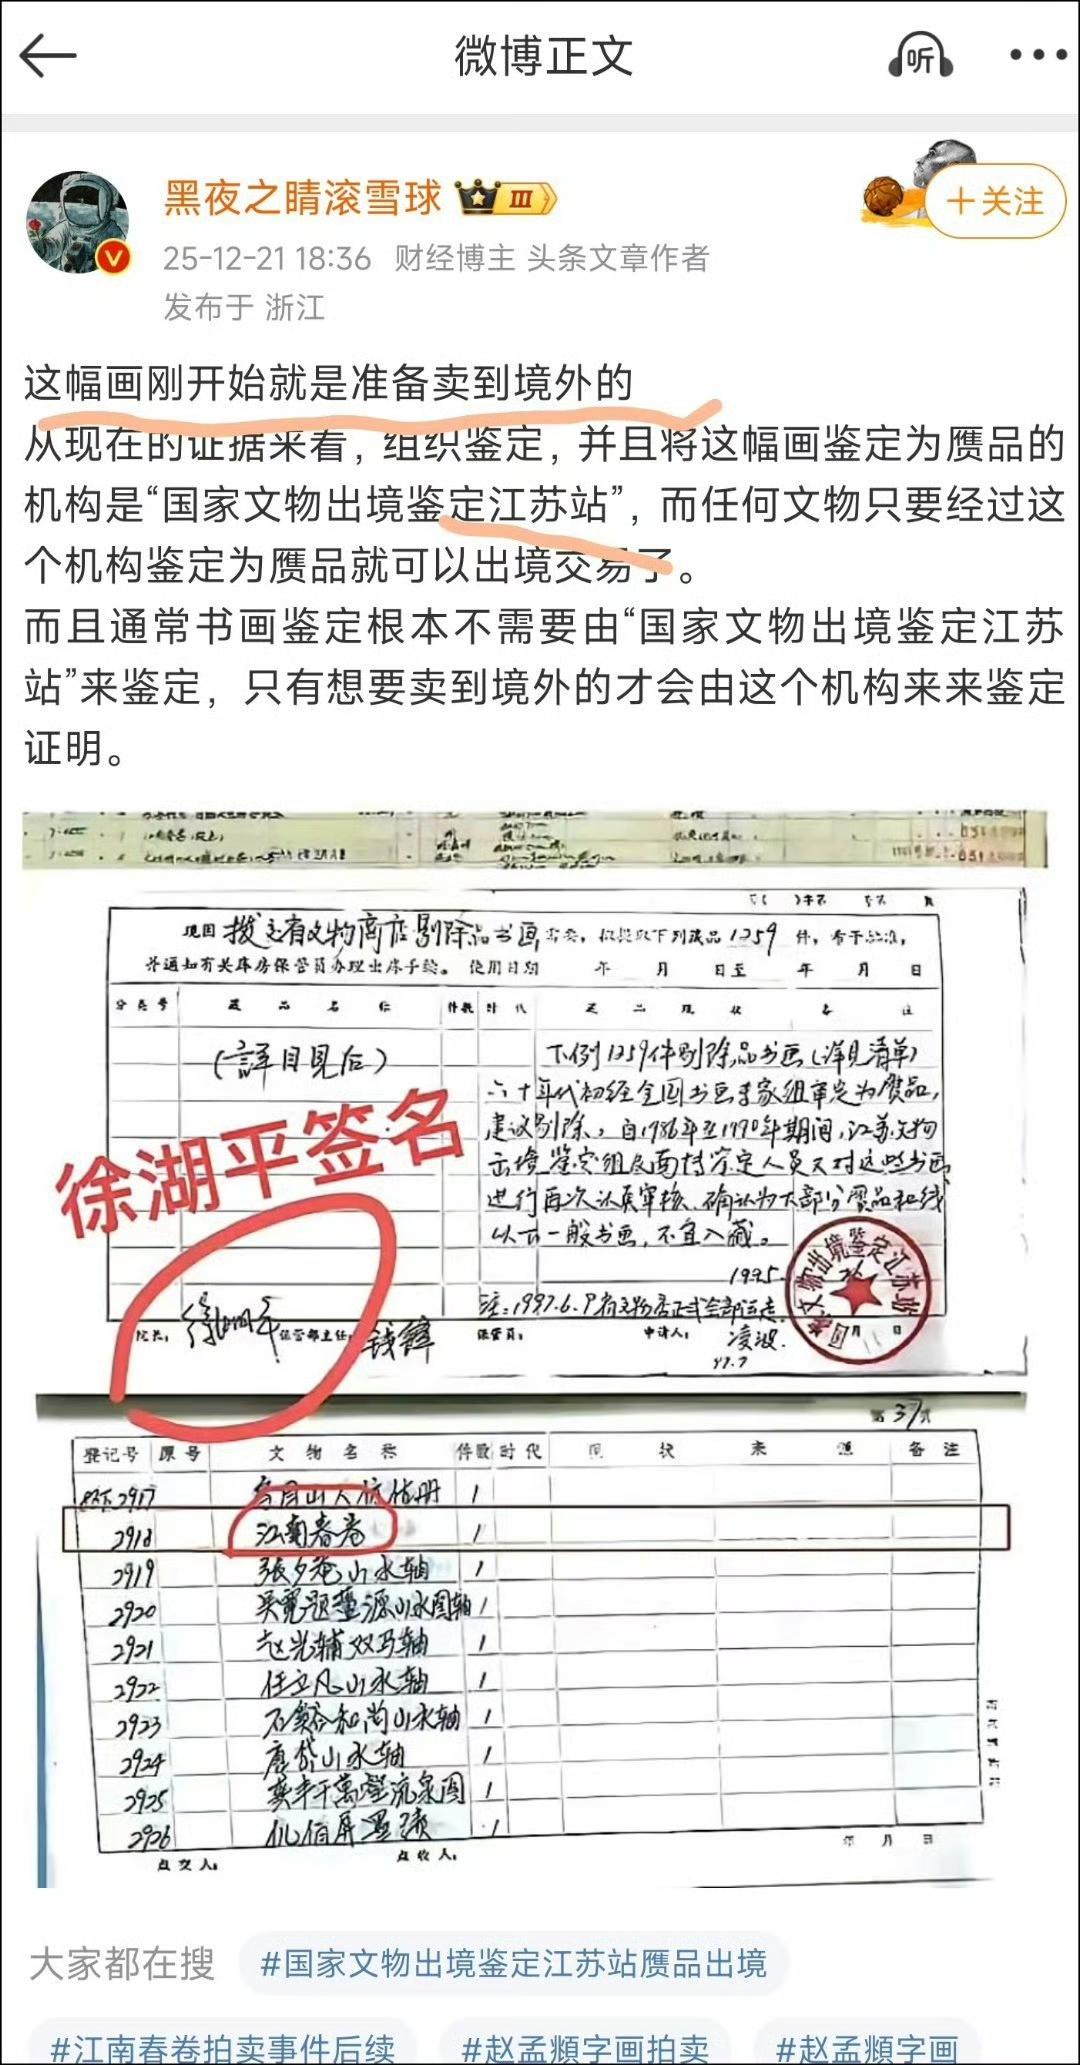 微博正文
听
黑夜之睛滚雪球
III
+关注
25-12-21 18:36 财经博主 头条文章作者
发布于 浙江
这幅画刚开始就是准备卖到境外的
从现在的证据来看，组织鉴定，并且将这幅画鉴定为赝品的
机构是“国家文物出境鉴定江苏站”，而任何文物只要经过这
个机构鉴定为赝品就可以出境交易了。
而且通常书画鉴定根本不需要由“国家文物出境鉴定江苏
站”来鉴定，只有想要卖到境外的才会由这个机构来来鉴定
证明。
现因拨交省文物商店剔除品书画需要，拟提取下列藏品1259件，希予批准，
并通知有关库房保管员办理出库手续。使用日期 年 月 日至 年 月 日
分类号 藏品名称 件数 时代 藏品现状 备注
（詳目見后）
下例1259件剔除品书画（详见清单）
六十年代初经全国书画专家组审定为赝品，
建议剔除，自1986年至1990年期间，江苏文物
出境鉴定组及面特鉴定人员又对这些书画
进行再次认真审核，确认为大部分赝品和线
以下一般书画，不宜入藏。
1995.
注：1997.6.9省文物店正式全部运走
徐湖平签名
院长： 徐湖平 保管部主任： 钱锋 保管员： 申请人： 凌波.
97.7
国家文物出境鉴定江苏站
第37页
登记号 原号 文物名称 件数 时代 现状 来源 备注
2917 1
2918 江南春卷 1
2919 张夕庵山水轴 1
2920 吴宽题董源山水图轴 1
2921 赵光辅双马轴 1
2922 任立凡山水轴 1
2923 石谿和尚山水轴 1
2924 唐岱山水轴 1
2925 1
2926 1
年 月 日
点交人： 点收人：
大家都在搜
#国家文物出境鉴定江苏站赝品出境
#江南春卷拍卖事件后续
#赵孟頫字画拍卖
#赵孟頫字画